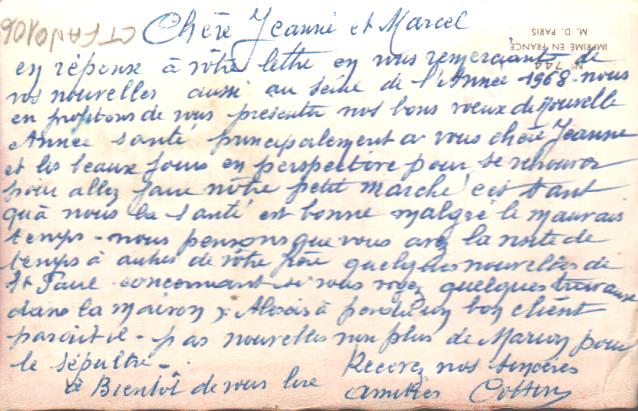 Chère Jeanne et Marcel
en réponse à vôtre lettre en vous remerciant de
vos nouvelles aussi au seuil de l'Année 1968 nous
en profitons de vous présenter nos bons voeux de Nouvelle
Année santé principalement a vous chère Jeanne
et les beaux jours en perspective pour se retrouver
pour allez faire nôtre petit marché
quà nous la santé est bonne malgré le mauvais
temps - nous pensons que vous avez la visite de
temps à autres de vôtre quelques nouvelles de
St Paul concernant si vous voyez quelques travaux
dans la maison Alexis à perdu un bon client
parait-il - pas nouvelles non plus de Marion pour
le
Recevez nos sincères
a Bientôt de vous lire amitiés
CTFAN0106
IMPRIMÉ EN FRANCE
M. D. PARIS